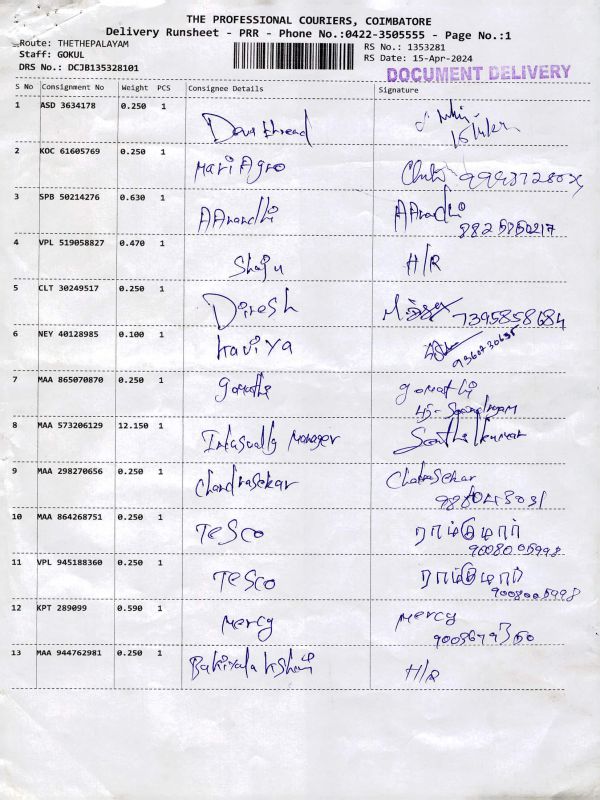 THE PROFESSIONAL COURIERS, COIMBATORE
Delivery Runsheet - PRR - Phone No.:0422-3505555 - Page No.:1
Route: THETHEPALAYAM RS No.: 1353281
Staff: GOKUL RS Date: 15-Apr-2024
DRS No.: DCJB135328101 DOCUMENT DELIVERY
S No Consignment No Weight PCS Consignee Details Signature
1 ASD 3634178 0.250 1
2 KOC 61605769 0.250 1 Mari Agro
3 SPB 50214276 0.630 1 AAnandhi AAnandhi
4 VPL 519058827 0.470 1 Shaju H/R
5 CLT 30249517 0.250 1 Dinesh 7395858684
6 NEY 40128985 0.100 1 Kaviya
7 MAA 865070870 0.250 1 gomathi gomathi
8 MAA 573206129 12.150 1 Manager Senthilkumar
9 MAA 298270656 0.250 1 Chandrasekar
10 MAA 864268751 0.250 1 TESCO ராம்குமார்
11 VPL 945188360 0.250 1 TESCO ராம்குமார்
9008005998
12 KPT 289099 0.590 1 Mercy Mercy
13 MAA 944762981 0.250 1 H/R